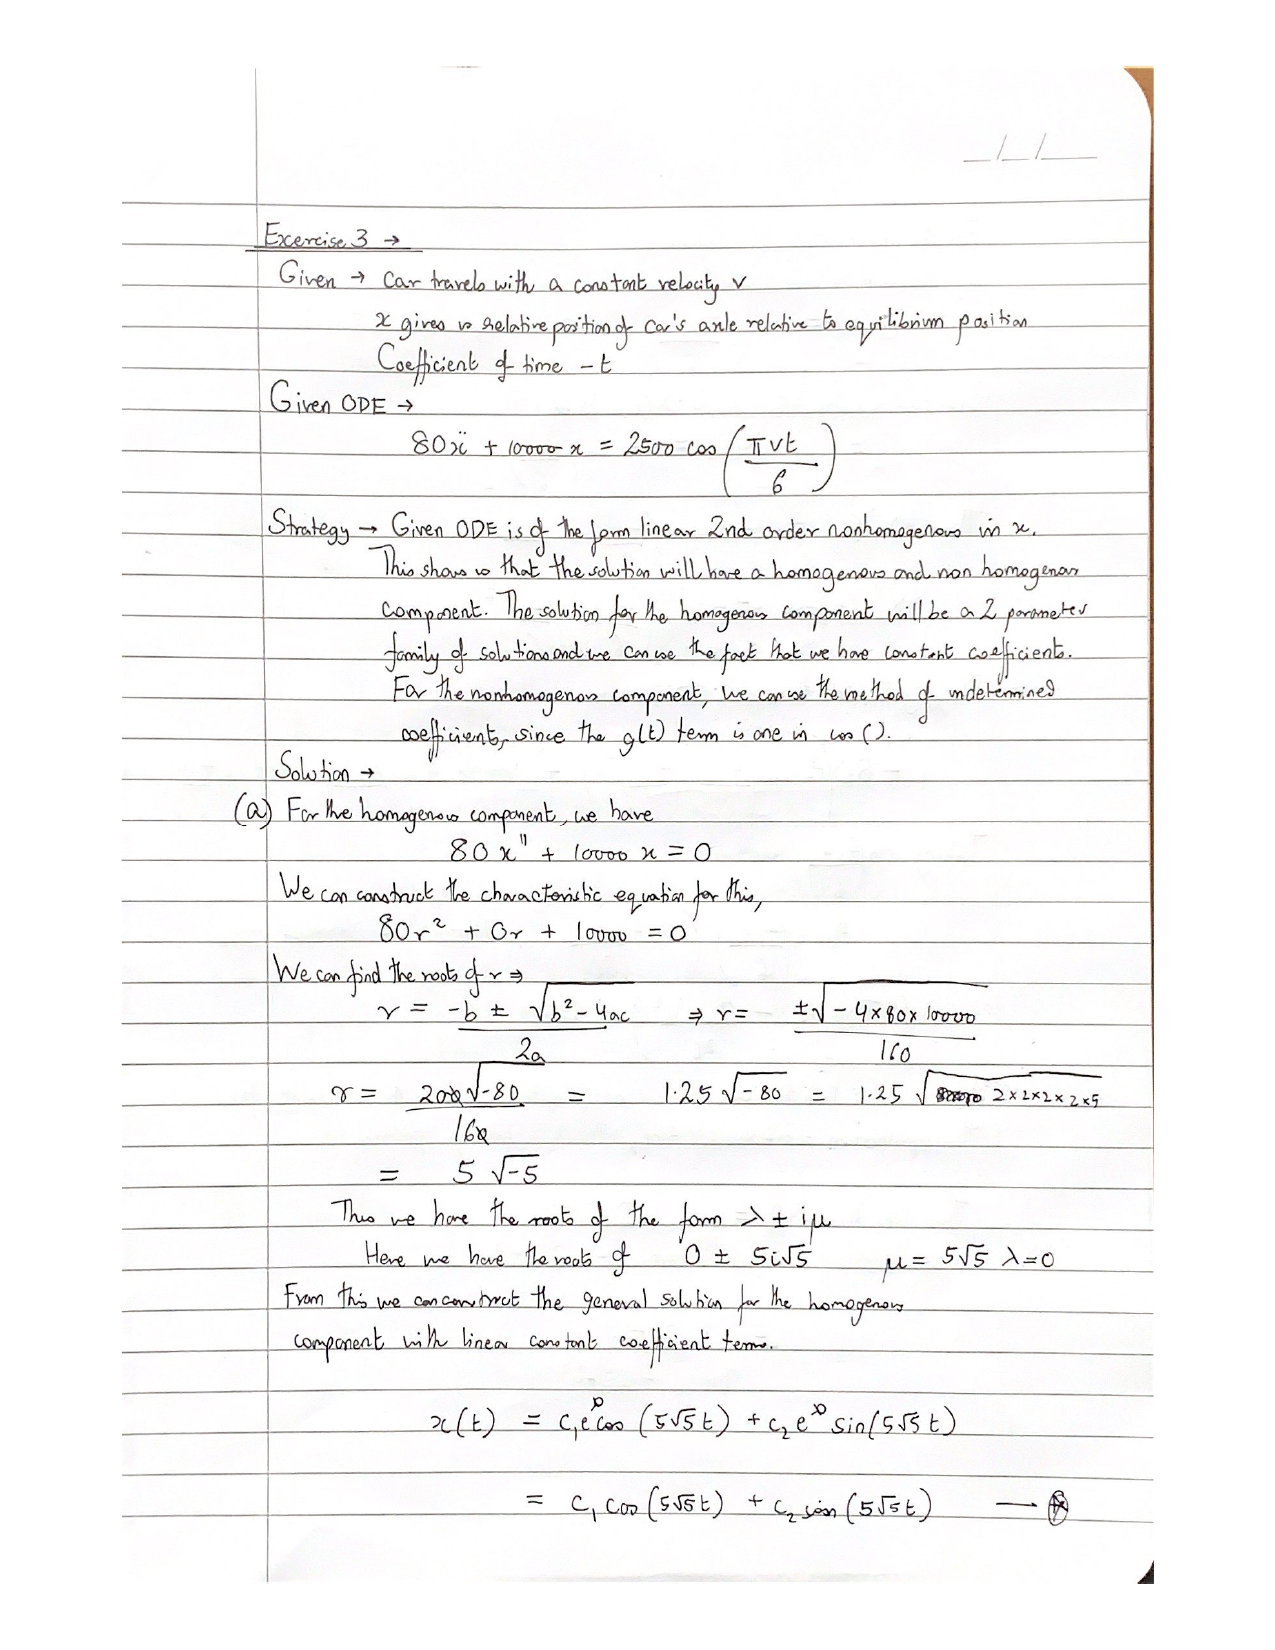 _/_/__
Exercise 3 →
Given → Car travels with a constant velocity v
x gives us relative position of car's axle relative to equilibrium position
Coefficient of time - t
Given ODE →
80ẍ + 10000 x = 2500 cos (πvt / 6)
Strategy → Given ODE is of the form linear 2nd order nonhomogenous in x.
This shows us that the solution will have a homogenous and non homogenous
component. The solution for the homogenous component will be a 2 parameter
family of solutions and we can use the fact that we have constant coefficients.
For the nonhomogenous component, we can use the method of undetermined
coefficients, since the g(t) term is one in cos ().
Solution →
(a) For the homogenous component, we have
80 x'' + 10000 x = 0
We can construct the characteristic equation for this,
80r² + 0r + 10000 = 0
We can find the roots of r ⇒
r = -b ± √(b² - 4ac) / 2a ⇒ r = ±√(-4×80×10000) / 160
r = 200√-80 / 160 = 1.25 √-80 = 1.25 √2×2×2×2×5
= 5 √-5
Thus we have the roots of the form λ ± iμ
Here we have the roots of 0 ± 5i√5 μ = 5√5 λ=0
From this we can construct the general solution for the homogenous
component with linear constant coefficient terms.
x(t) = c₁e⁰cos (5√5t) + c₂e⁰ sin(5√5t)
= c₁ cos (5√5t) + c₂ sin (5√5t) — ⊛